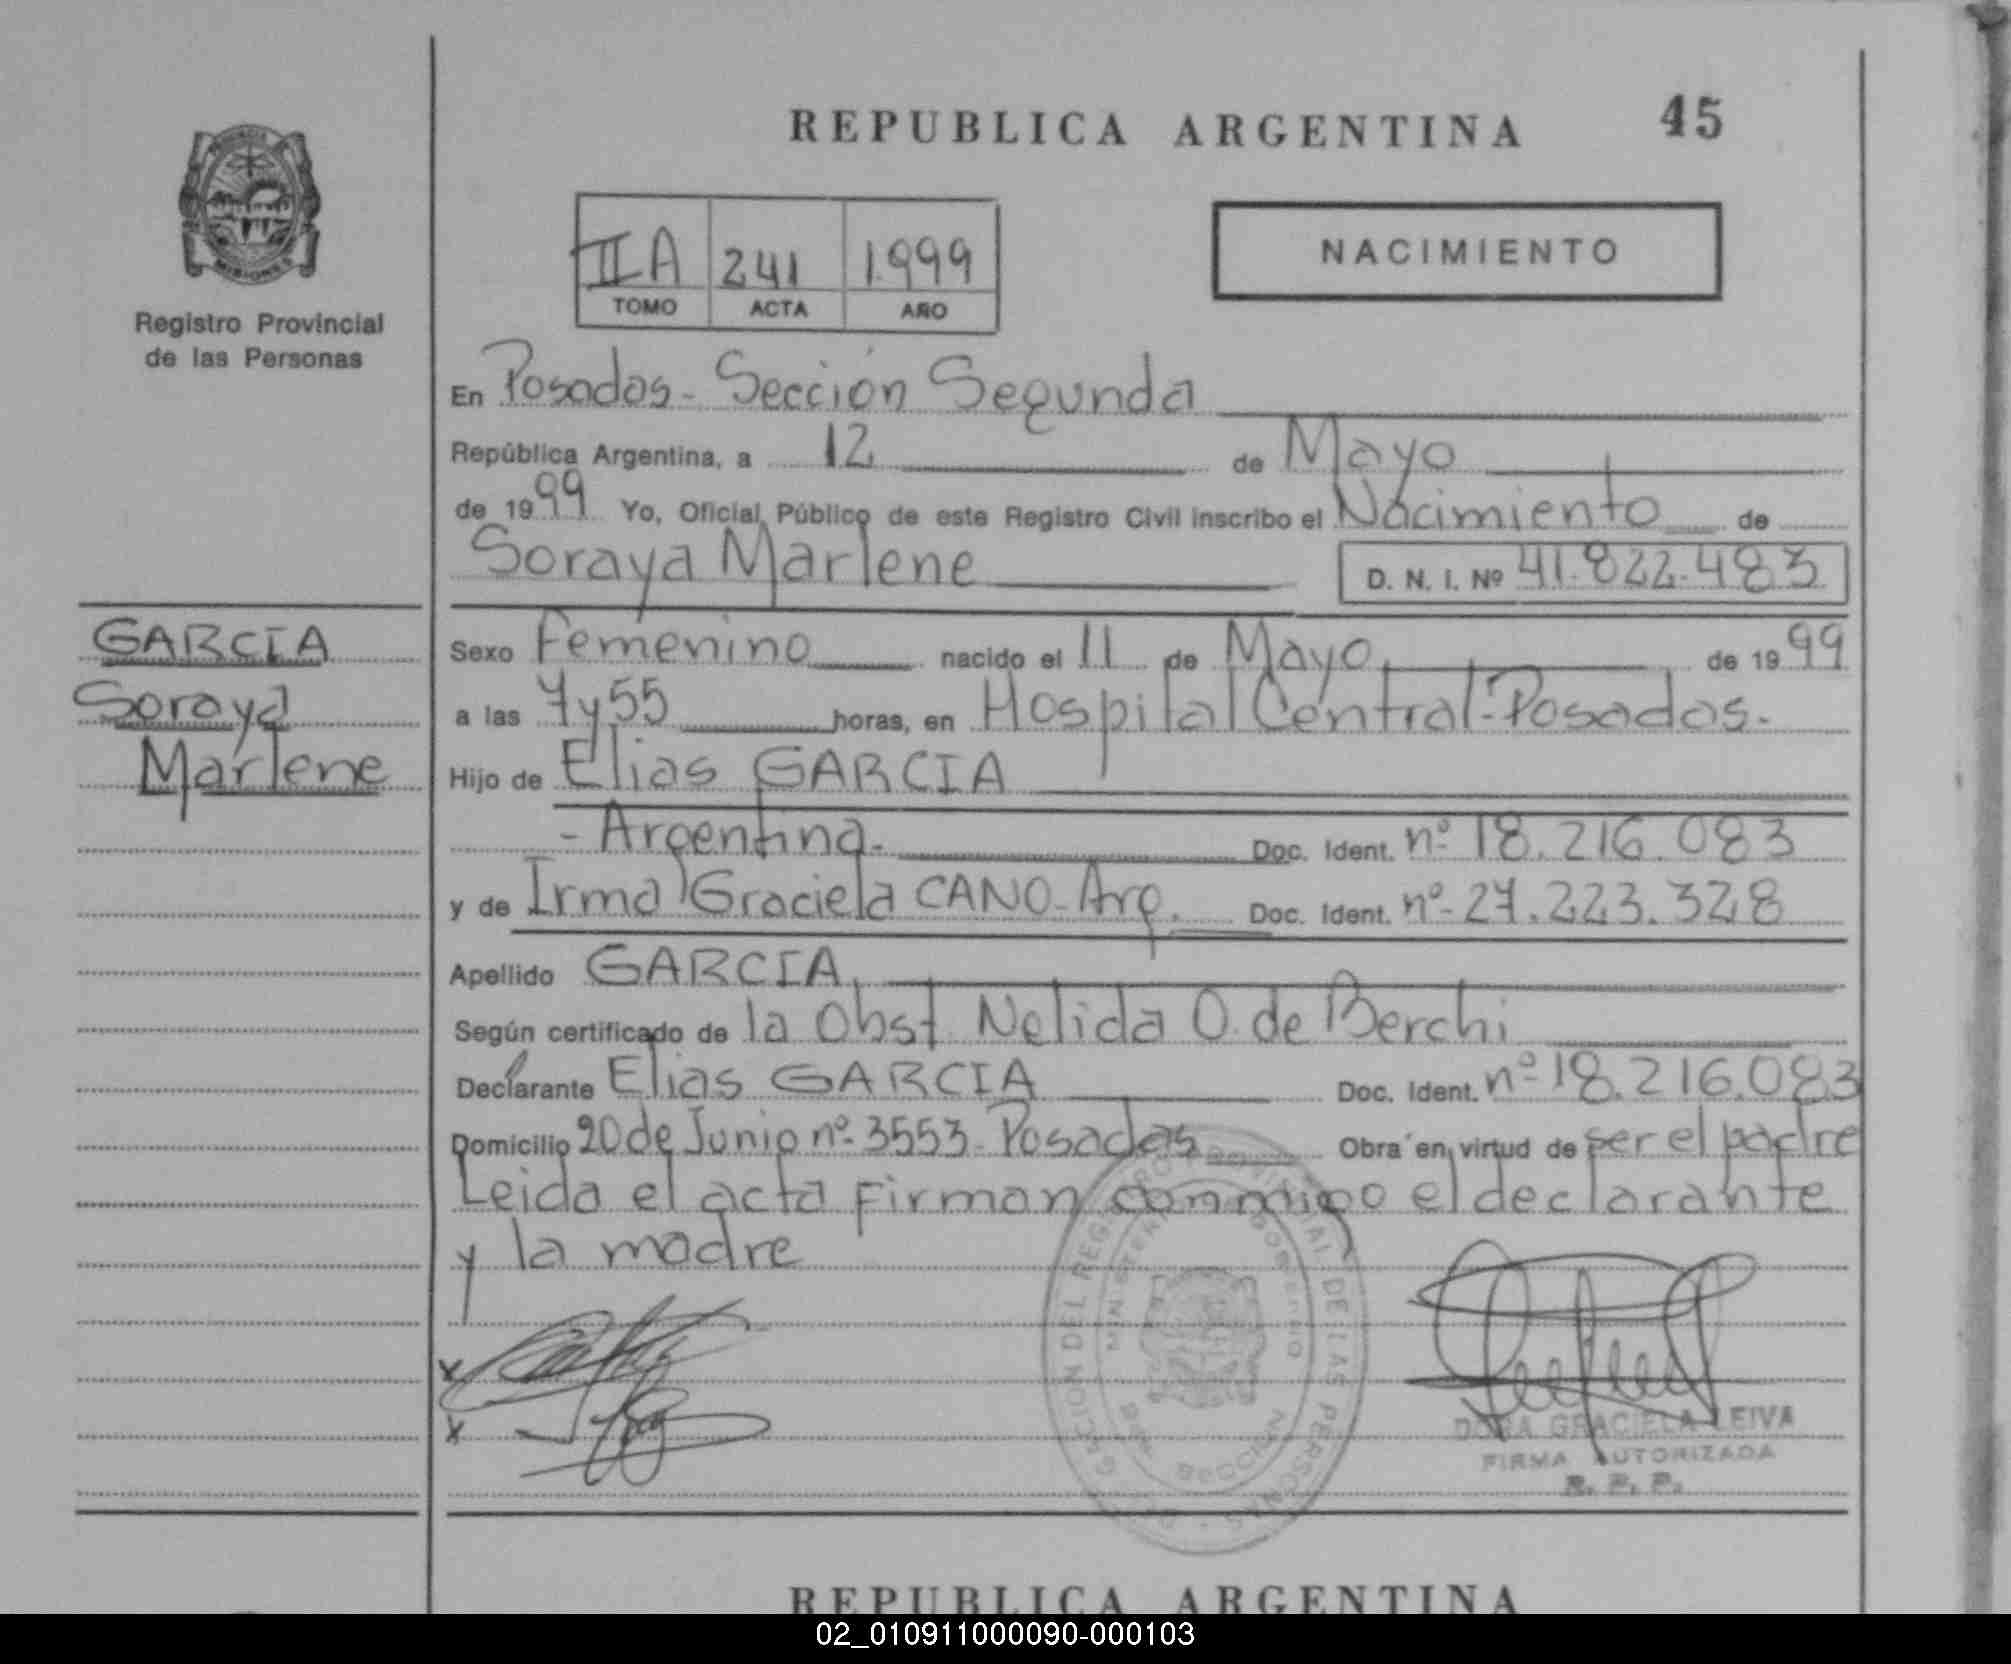 REPUBLICA ARGENTINA 45
PROVINCIA
MISIONES
Registro Provincial
de las Personas
II A 241 1.999
TOMO ACTA AÑO
NACIMIENTO
En Posadas - Sección Segunda
República Argentina, a 12 de Mayo
de 1999 Yo, Oficial Público de este Registro Civil inscribo el Nacimiento de
Soraya Marlene D. N. I. Nº 41.822.483
GARCIA
Soraya
Marlene
Sexo Femenino nacido el 11 de Mayo de 1999
a las 7 y 55 horas, en Hospital Central - Posadas.
Hijo de Elias GARCIA
- Argentina. Doc. Ident. nº 18.216.083
y de Irma Graciela CANO - Arg. Doc. Ident. nº 27.223.328
Apellido GARCIA
Según certificado de la Obst. Nelida O. de Berchi
Declarante Elias GARCIA Doc. Ident. nº 18.216.083
Domicilio 20 de Junio nº 3553 - Posadas Obra en virtud de ser el padre
Leida el acta firman conmigo el declarante
y la madre
x
x
DORA GRACIELA LEIVA
FIRMA AUTORIZADA
R. P. P.
REPUBLICA ARGENTINA
02_010911000090-000103